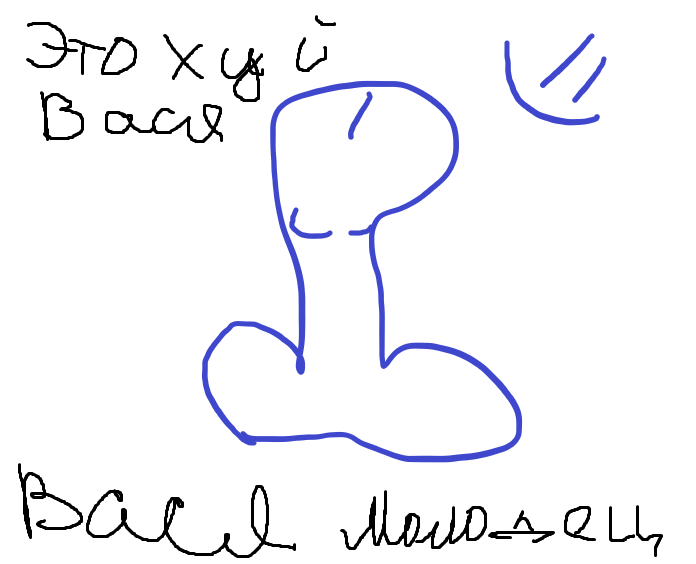 Это хуй
Вася
Вася молодец